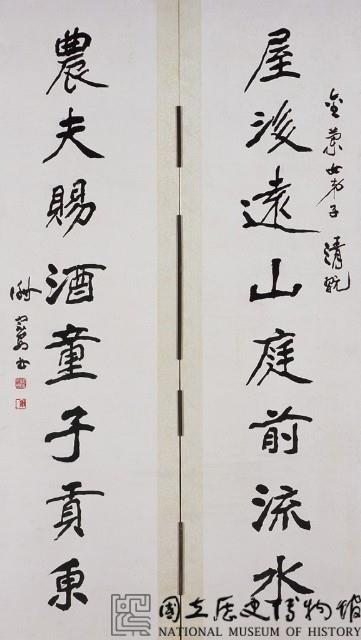 金蘭女弟子 清玩
屋後遠山庭前流水
農夫賜酒童子貢
謝宗安書
國立歷史博物館
NATIONAL MUSEUM OF HISTORY